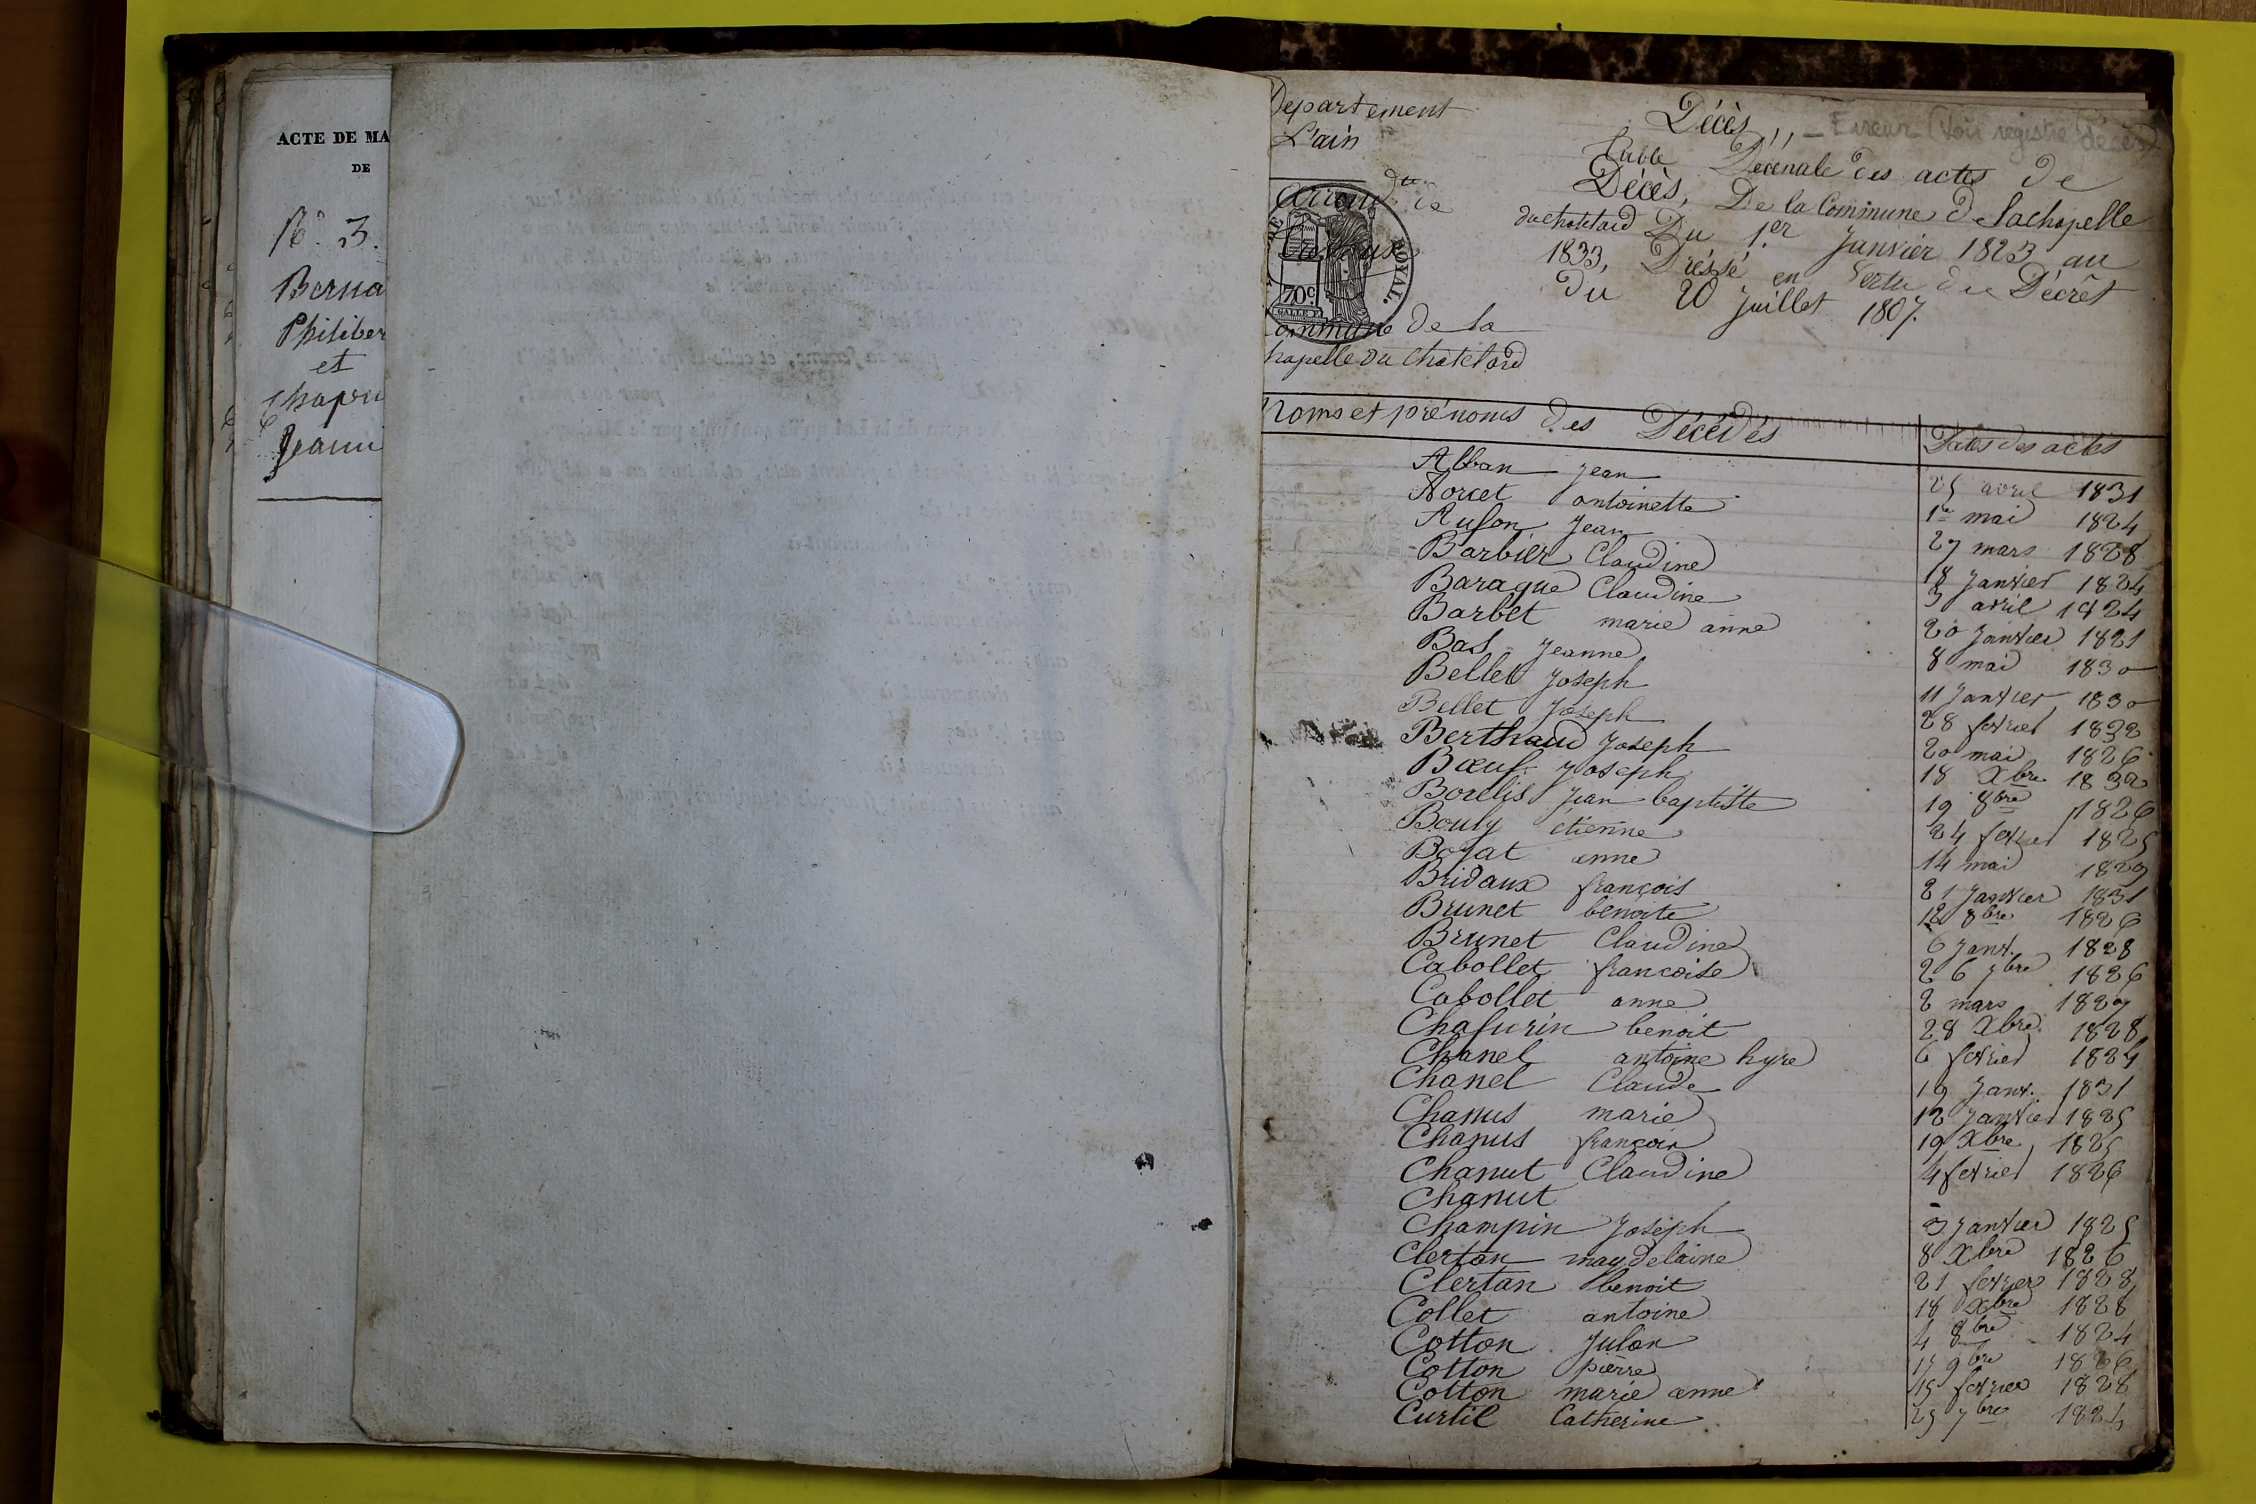 ACTE DE MA
DE
N.º 3.
Berna
Philiber
et
Chapu
Jeann
Departement
L'ain
Arrond.t de
Trévoux
ROYAL.
70c.
ommune de la
hapelle du Chatelard
Décès,, — Erreur (Voir registre décès)
Table Décénale des actes de
Décès, De la Commune de Lachapelle
du chatelard Du 1.er Janvier 1823 au
1833, Dréssé en Vertu du Décrêt
du 20 Juillet 1807.
Noms et prénoms des Décédés Dates des actes
Alban Jean 25 avril 1831
Antoinette 1er mai 1824
Jean 27 mars 1828
Barbier Claudine 18 Janvier 1824
Baraque Claudine 3 avril 1824
Barbet marie anne 20 Janvier 1821
Bas Jeanne 8 mai 1830
Bellet Joseph 11 Janvier 1830
Bellet Joseph 28 fevrier 1832
Berthaud Joseph 20 mai 1826
Bœuf Joseph 18 Xbre 1832
Borelis Jean baptiste 19 8bre 1826
Bouly etienne 24 fevrier 1825
Boyat anne 14 mai 1829
Bridaux françois 21 Janvier 1831
Brunet benoite 12 8bre 1826
Brunet Claudine 6 Janv. 1828
Cabollet francoise 26 7bre 1826
Cabollet anne 2 mars 1827
Chafurin benoit 28 Xbre 1828
Chanel antoine hyre 6 fevrier 1824
Chanel Claude 19 Janv. 1831
Chanus marie 12 Janvier 1825
Chanus françois 19 Xbre 1825
Chanut Claudine 4 fevrier 1826
Chanut
Champin Joseph 3 Janvier 1825
Clertan magdelaine 8 Xbre 1826
Clertan benoit 21 fevrier 1828
Collet antoine 18 Xbre 1828
Cotton Julan 4 8bre 1824
Cotton pierre 15 9bre 1826
Cotton marie anne 15 fevrier 1828
Curtil Catherine 25 7bre 1824